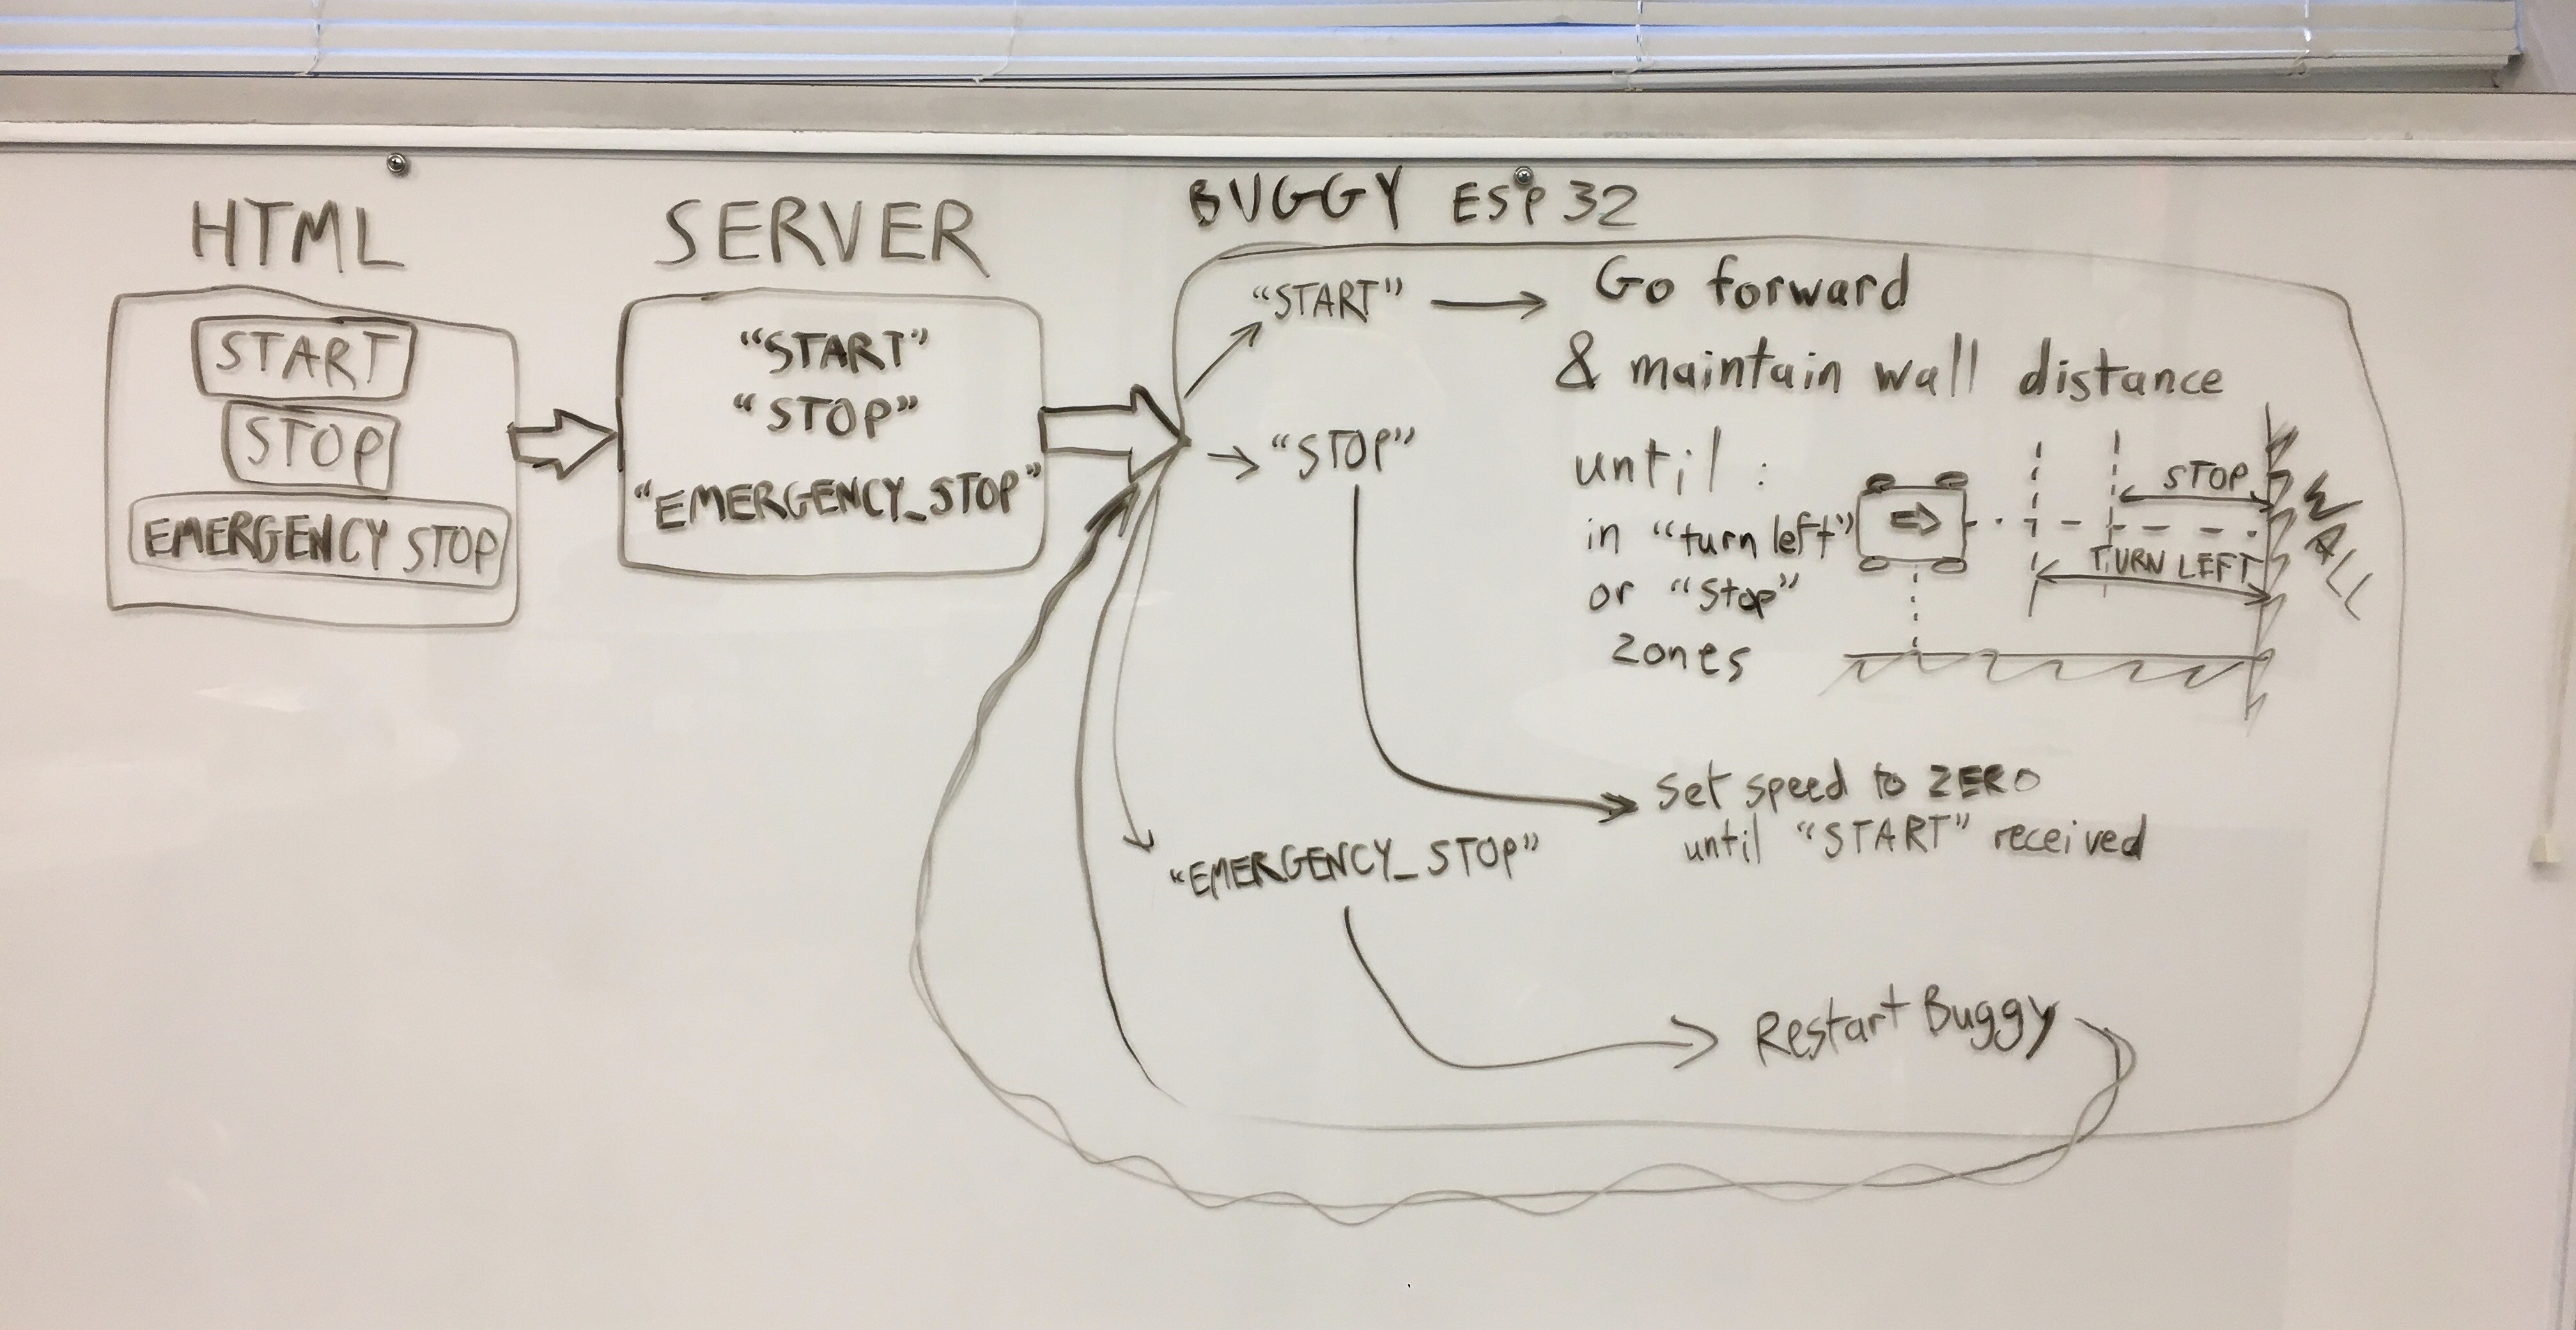 HTML
START
STOP
EMERGENCY STOP
SERVER
"START"
"STOP"
"EMERGENCY_STOP"
BUGGY ESP 32
"START"
Go forward
& maintain wall distance
"STOP"
until :
in "turn left"
or "Stop"
zones
STOP
TURN LEFT
WALL
Set speed to ZERO
until "START" received
"EMERGENCY_STOP"
Restart Buggy